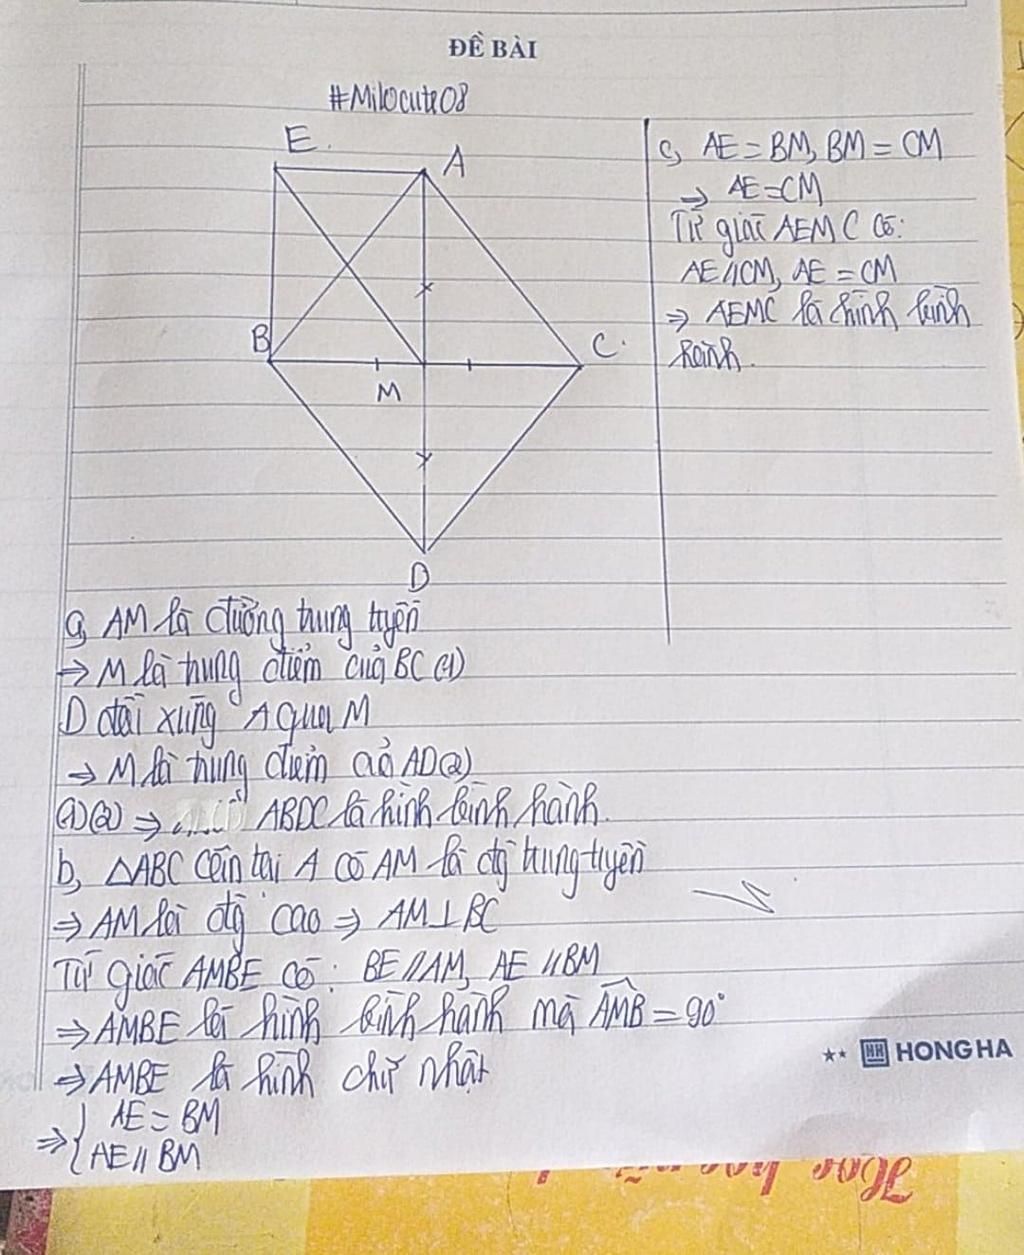 ĐỀ BÀI
#Milocute08
E
A
B
C
M
D
a, AM là đường trung tuyến
⇒ M là trung điểm của BC (1)
D đối xứng A qua M
⇒ M là trung điểm của AD (2)
(1)(2) ⇒ ABDC là hình bình hành.
b, △ABC cân tại A có AM là đg trung tuyến
⇒ AM là đg cao ⇒ AM⊥BC
Tứ giác AMBE có: BE//AM, AE//BM
⇒ AMBE là hình bình hành mà AMB = 90°
⇒ AMBE là hình chữ nhật
⇒ { AE = BM
AE // BM
c, AE = BM, BM = CM
⇒ AE = CM
Tứ giác AEMC có:
AE//CM, AE = CM
⇒ AEMC là hình bình
hành.
HONG HA